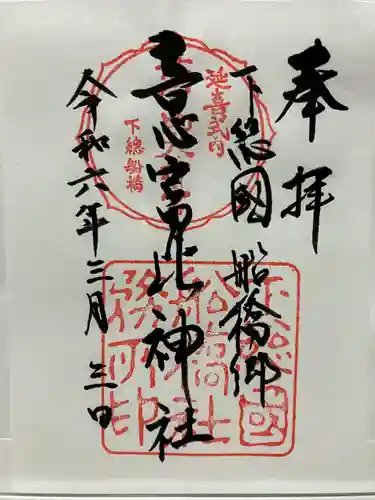 奉拝
下総國 船橋郷
意富比神社
令和六年三月三日
延喜式内
下總船橋